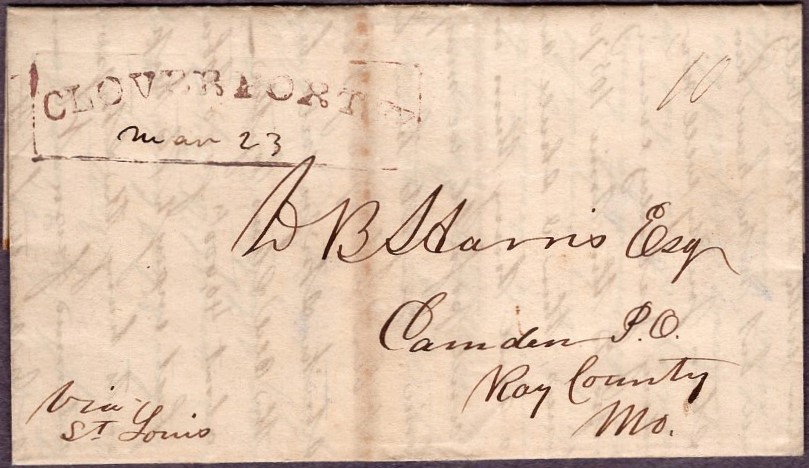 CLOVERPORT
Mar 23
10
D B S Harris Esq
Camden P.O.
Ray County
Mo.
Via
St Louis